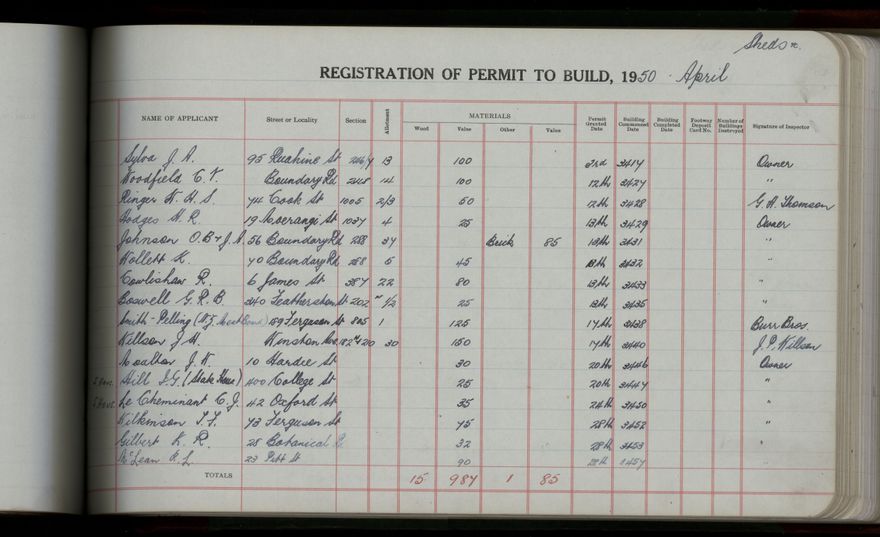 Sheds etc.
REGISTRATION OF PERMIT TO BUILD, 1950 April
NAME OF APPLICANT Street or Locality Section Allotment MATERIALS Wood Value Other Value Permit Granted Date Building Commenced Date Building Completed Date Footway Deposit Card No. Number of Buildings Destroyed Signature of Inspector
Sylva J. A. 95 Ruahine St 13 100 3rd 3417 Owner
Woodfield C. V. Boundary Rd 14 100 12th 3427 "
Ringer W. H. S. 74 Cook St 1005 2/3 60 12th 3428 G. A. Thomson
Hodges H. R. 19 Moerangi St 1037 4 25 13th 3429 Owner
Johnson O. B & J. A. 56 Boundary Rd 288 37 Brick 85 13th 3431 "
Wollett K. 70 Boundary Rd 288 5 45 13th 3432 "
Cowlishaw R. 6 James St 387 22 80 13th 3433 "
Boswell G. R. B. 240 Featherston St 202 " 1/2 25 13th 3435 "
Smith - Pilling 159 Ferguson St 805 1 125 17th 3438 Burr Bros.
Willson J. H. Winston Ave 30 150 17th 3440 J. P. Willson
J. W. 10 Hardie St 30 20th 3446 Owner
Hill I. G. (State House) 400 College St 25 20th 3447 "
Le Cheminant C. J. 42 Oxford St 35 24th 3450 "
Wilkinson T. T. 73 Ferguson St 75 28th 3452 "
Gilbert K. R. 25 Botanical R. 32 28th 3453 "
McLean 23 Pitt St 90 28th 3457 "
TOTALS 15 987 1 85